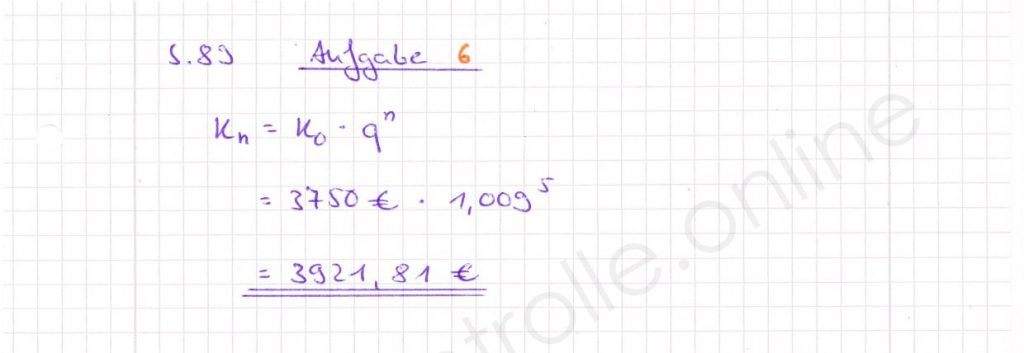 S.89 Aufgabe 6
Kn = K0 · qⁿ
= 3750 € · 1,009⁵
= 3921,81 €
trolle.online